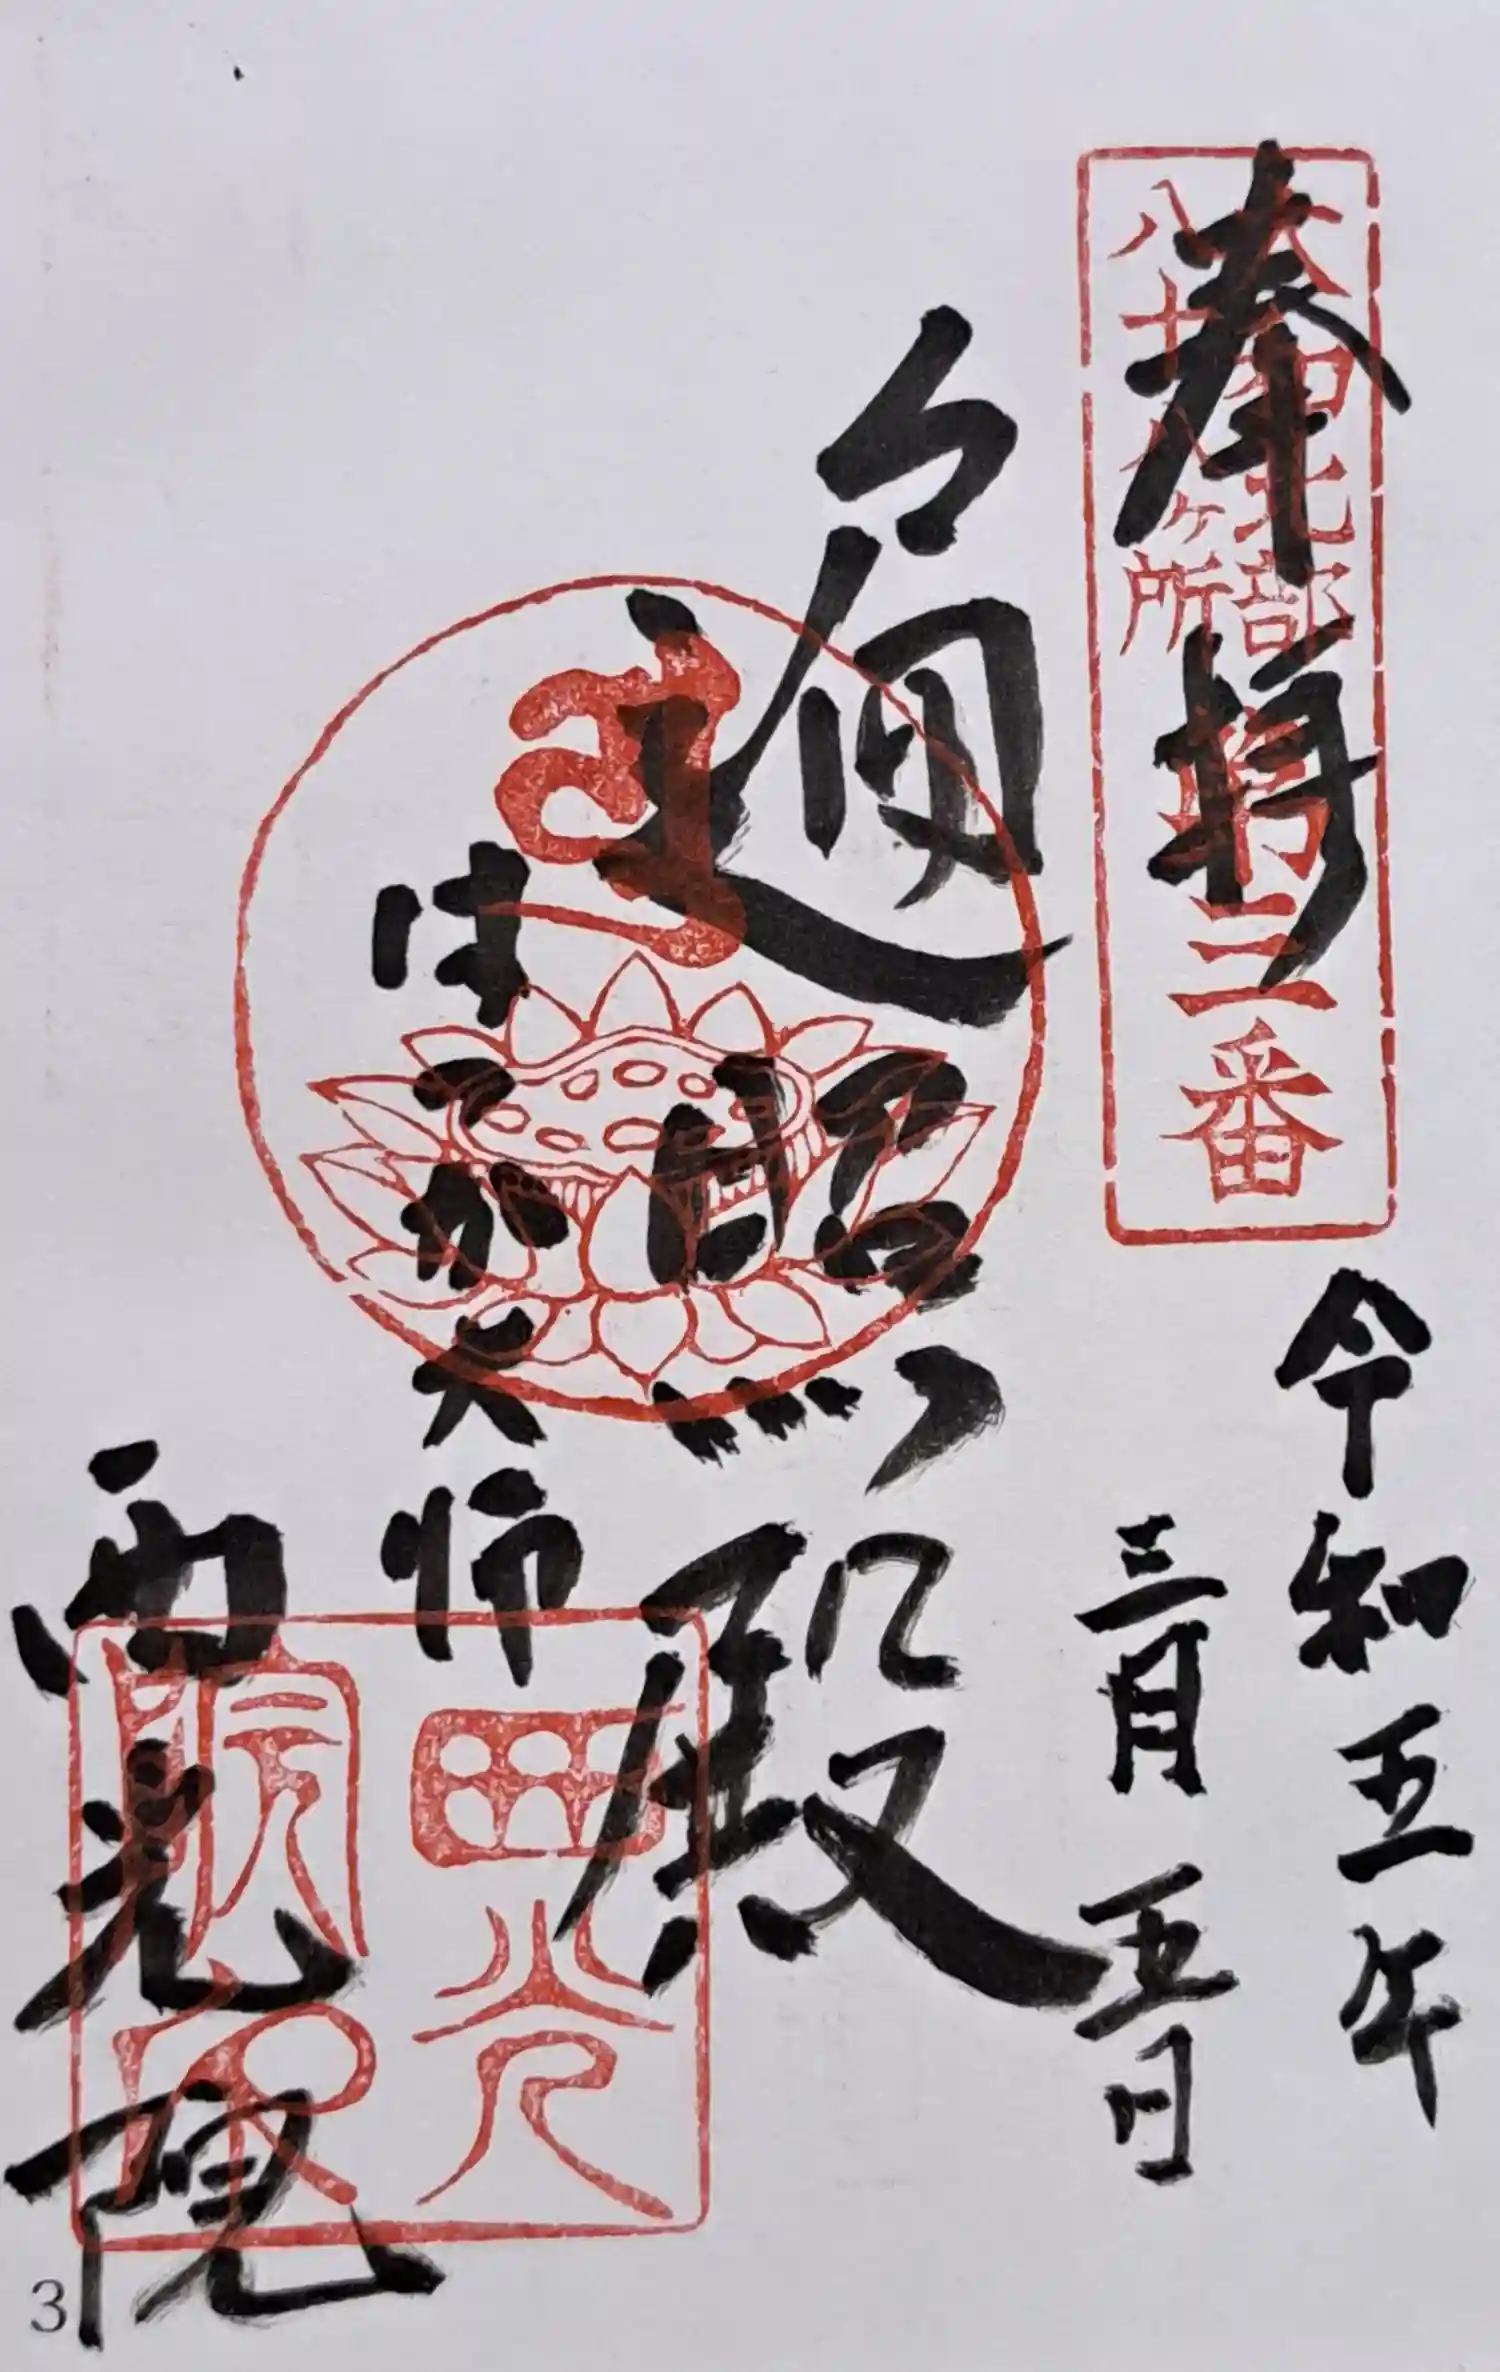 奉拝
大和北部
八十八ヶ所
第三番
令和五年
三月五日
遍照殿
はだか大師
西光院
3